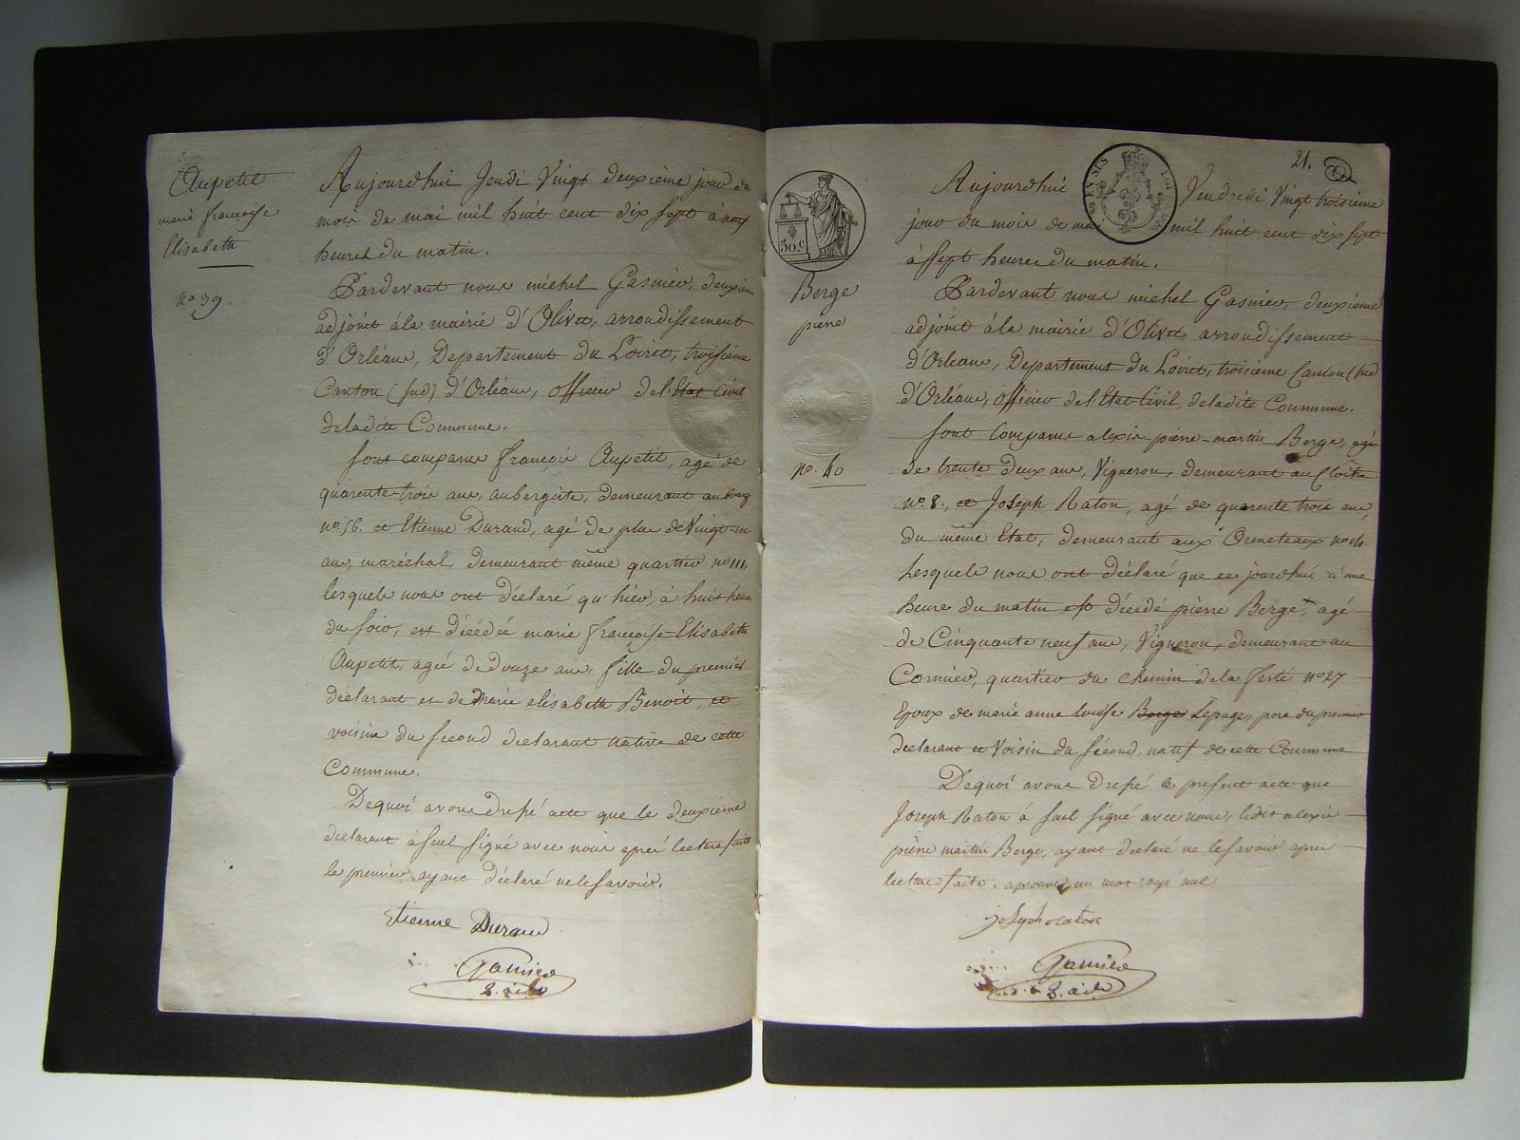 Aupetit
marie francoise
Elisabeth
no 39.
Aujourd'hui Jeudi Vingt deuxieme jour du
mois de mai mil huit cent dix sept à onze
heures du matin.
Pardevant nous michel Gasnier, deuxieme
adjoint à la mairie d'Olivet, arrondissement
d'Orléans, Departement du Loiret, troisieme
Canton (sud) d'Orléans, officier de l'Etat Civil
de ladite Commune.
sont comparus françois Aupetit, agé de
quarente-trois ans, aubergiste, demeurant au
no. 56. et Etienne Durand, agé de plus de Vingt-un
ans, maréchal, demeurant même quartier no 111,
lesquels nous ont déclaré qu'hier, à huit heures
du soir, est décédée marie françoise-Elisabeth
Aupetit, agée de douze ans, fille du premier
déclarant et de Marie elisabeth Benoit, et
voisine du second declarant native de cette
Commune.
Dequoi avons dressé acte que le deuxieme
declarant à seul signé avec nous après lecture faite
le premier ayant déclaré ne le savoir.
Etienne Durand
Gasnier
2. ad
21.
30 c
Berge
pierre
no. 40
Aujourd'hui Vendredi Vingt troisieme
jour du mois de mai mil huit cent dix sept
à sept heures du matin.
Pardevant nous michel Gasnier, deuxieme
adjoint à la mairie d'Olivet, arrondissement
d'Orleans, Departement du Loiret, troisieme Canton (sud
d'Orléans, officier de l'Etat Civil, de ladite Commune.
sont Comparus alexis pierre-martin Berge, agé
de trente deux ans, Vigneron, demeurant au Cloitre
no. 8., et Joseph Raton, agé de quarente trois ans,
du même Etat, demeurant aux Ormeteaux no
Lesquels nous ont déclaré que ce jourd'hui à une
heure du matin est décédé pierre Berge, agé
de Cinquante neuf ans, Vigneron, demeurant au
Cormier, quartier du chemin de la ferté no 27
Epoux de marie anne louise Berge Lepage, pere du premier
declarant et Voisin du second, natif de cette Commune
Dequoi avons dressé le present acte que
Joseph Raton à seul signé avec nous, ledit alexis
pierre martin Berge, ayant déclaré ne le savoir après
lecture faite. aprouvé un mot rayé nul
joseph raton
Gasnier
2. ad